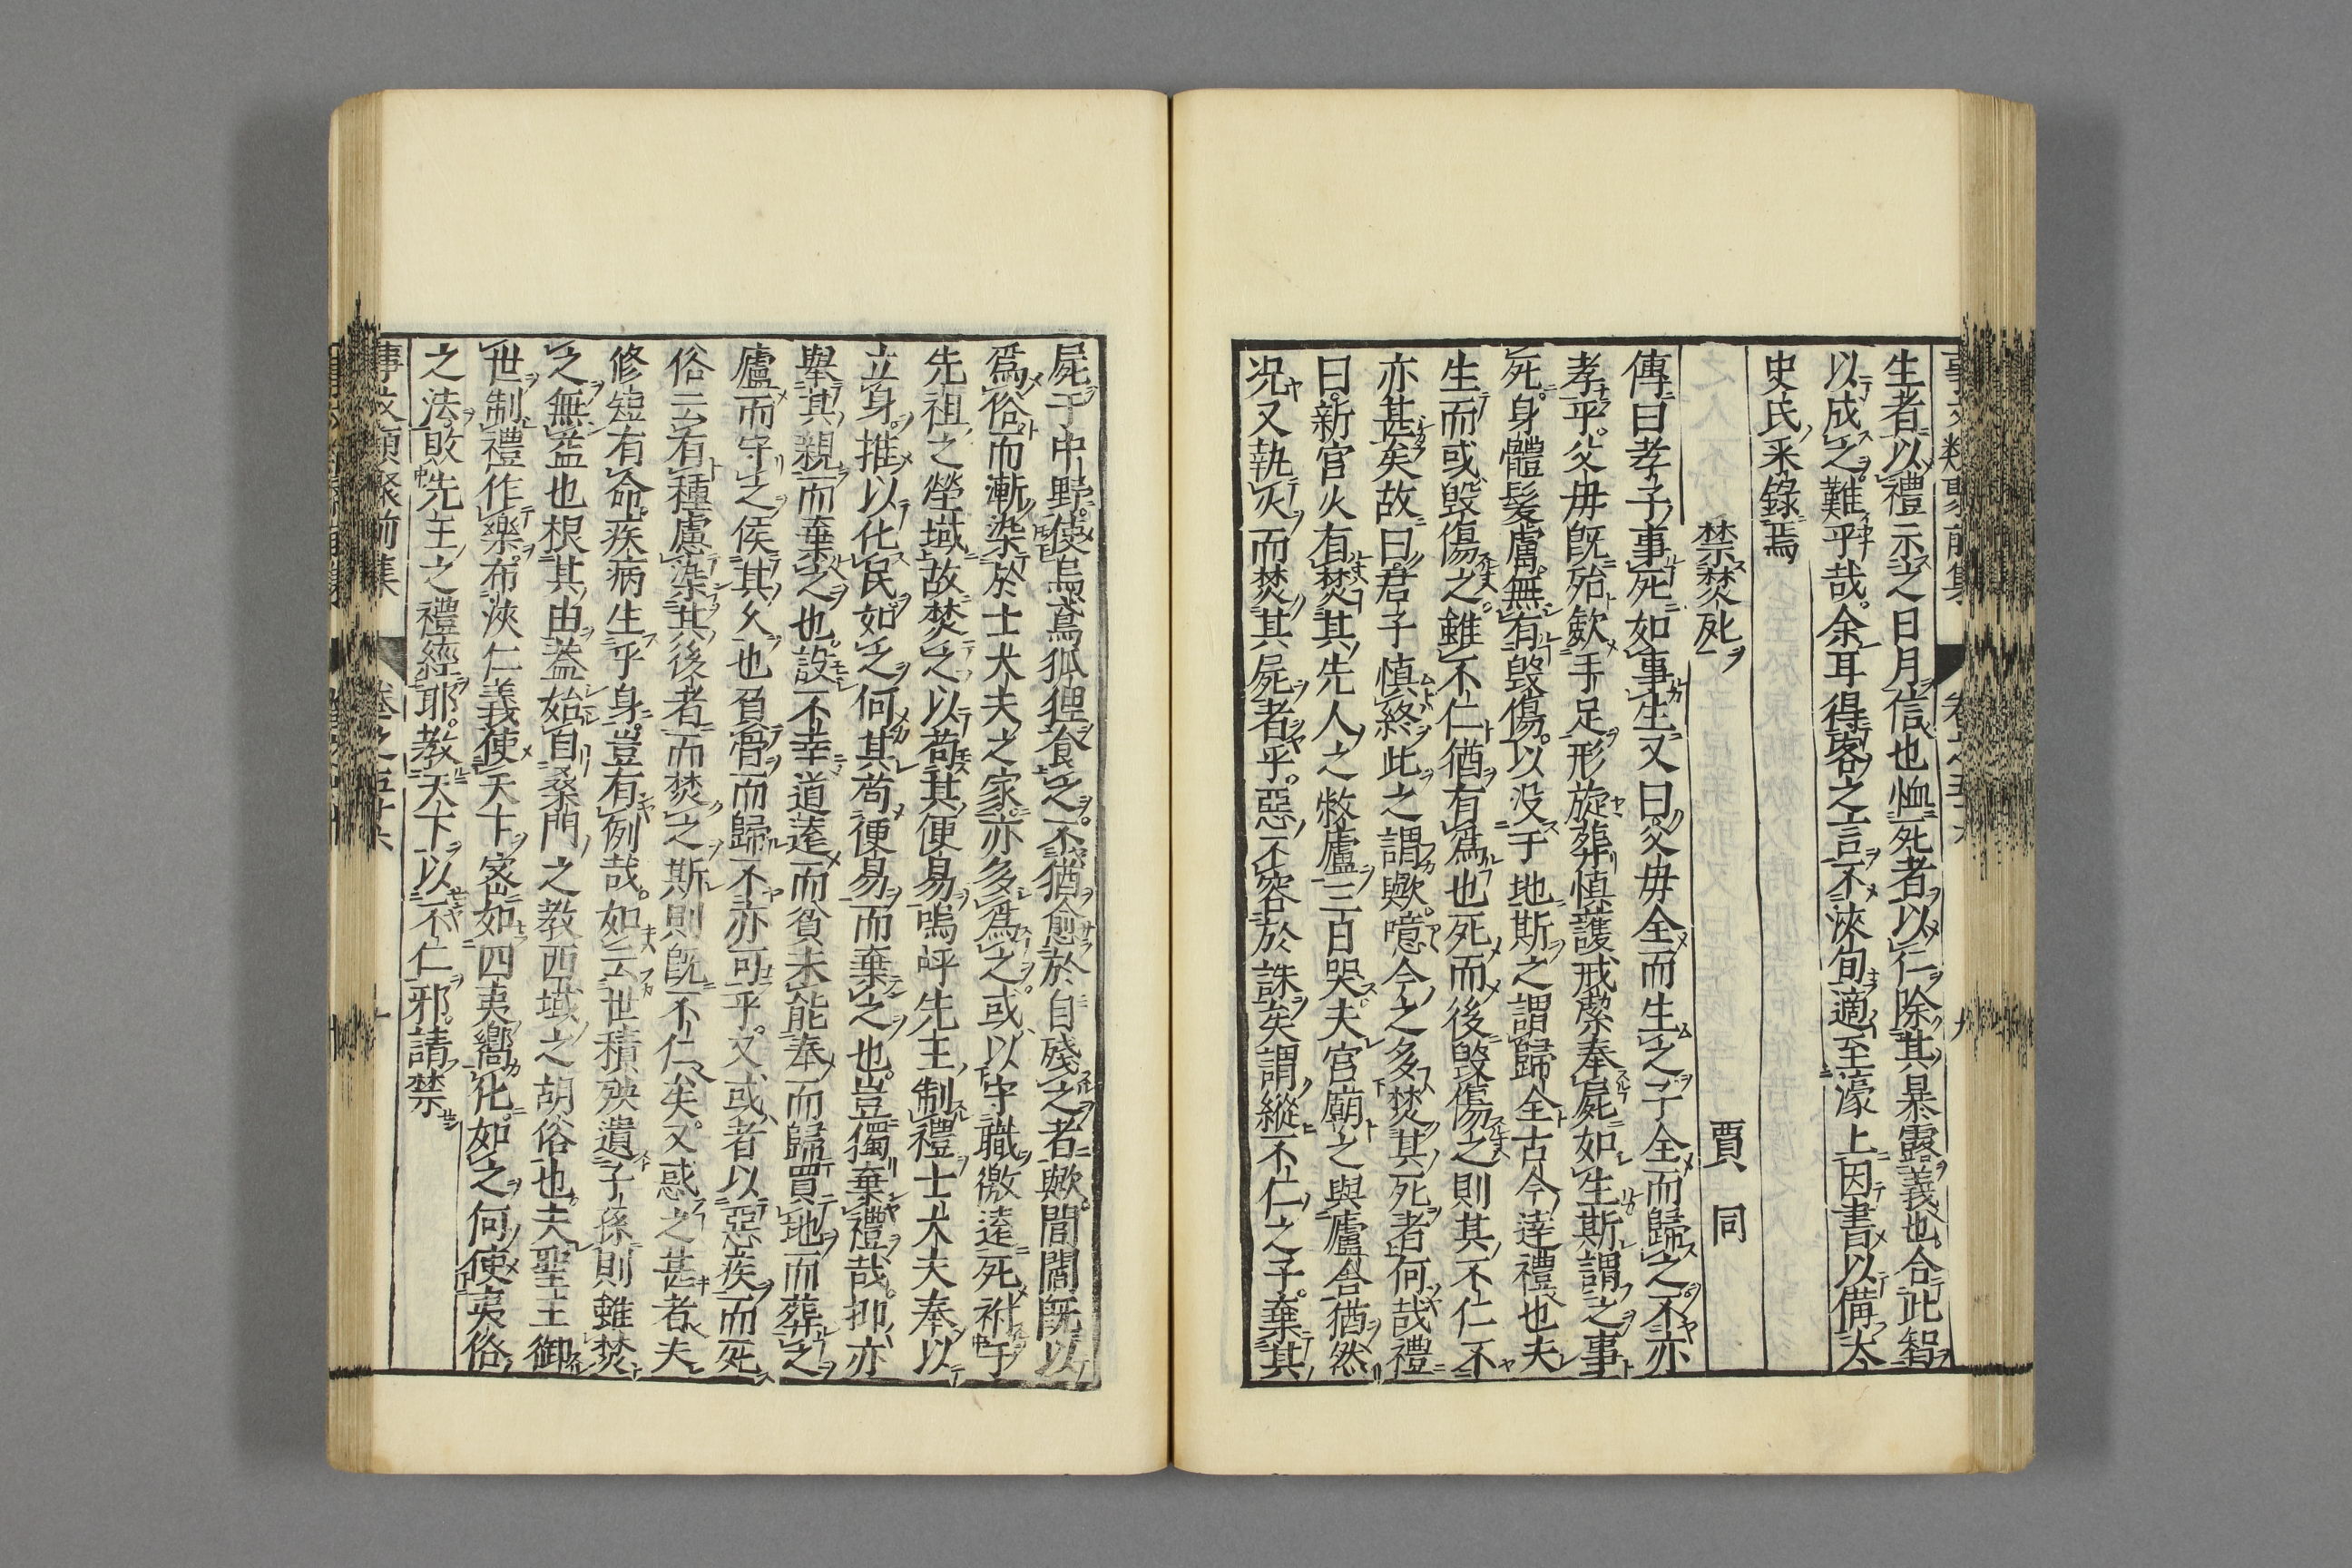 事文類聚前集 卷之五十六 九
生者以禮示之日月信也恤死者以仁除其暴露義也合此智
以成之難乎哉余耳得客之言不浹旬適至濠上因書以備太
史氏采錄焉
禁焚死 賈同
傳曰孝子事死如事生又曰父毋全而生之子全而歸之不亦
孝乎父毋既殆歛手足形旋葬慎護戒潔奉屍如生斯謂之事
死身體髮膚無有毀傷以没于地斯之謂歸全古今達禮也夫
生而或毀傷之雖不仁猶有爲也死而後毀傷之則其不仁不
亦甚矣故曰君子慎終此之謂歟噫今之多焚其死者何哉禮
曰新宮火有焚其先人之敝廬三日哭夫宮廟之與廬舍猶然
况又執火而焚其屍者乎惡不容於誅矣謂縱不仁之子棄其
屍于中野使烏鳶狐狸食之不猶愈於自殘之者歟閭閻既以
爲俗而漸染於士大夫之家亦多爲之或以守職徼遠死祔于
先祖之塋域故焚之以苟其便易嗚呼先王制禮士大夫奉以
立身推以化民如之何其苟便易而棄之也豈獨棄禮哉抑亦
舉其親而棄之也設不幸道遠而貧未能奉而歸買地而葬之
廬而守之俟其久也負骨而歸不亦可乎又或者以惡疾而死
俗云有種慮染其後者而焚之斯則既不仁矣又惑之甚者夫
修短有命疾病生乎身豈有例哉如云世積殃遺子孫則雖焚
之無益也根其由蓋始自桑門之教西域之胡俗也夫聖王御
世制禮作樂布浹仁義使天下密如四夷嚮化如之何使夷俗
之法敗先王之禮經耶教天下以不仁邪請禁
事文類聚前集 卷之五十六 十